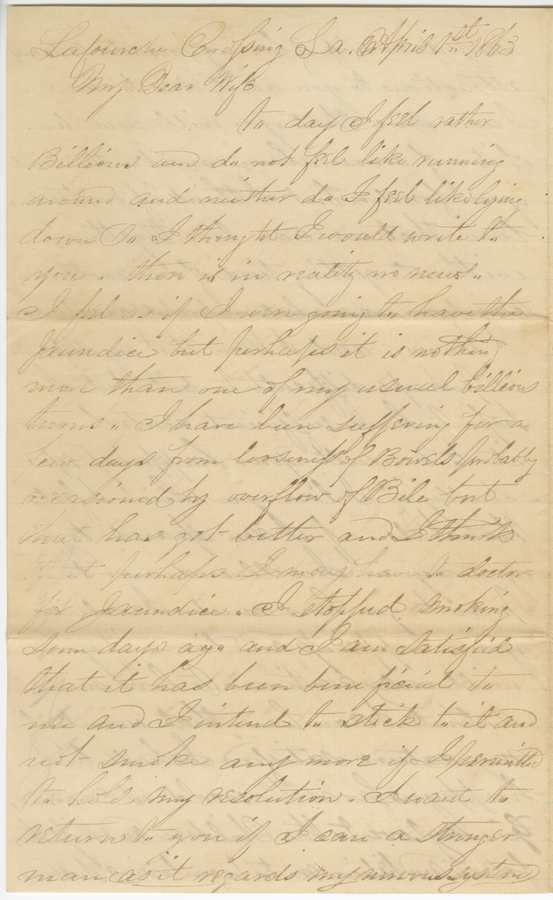 Lafourche Crossing La. April 1st 1863
My Dear Wife
To day I feel rather
Billious and do not feel like running
around and neither do I feel like lying
down So I thought I would write to
you. there is in reality no news..
I feel as if I were going to have the
Jaundice but perhaps it is nothing
more than one of my usual billious
turns.. I have been suffering for a
few days from looseness of Bowels probably
occasioned by overflow of Bile but
that has got better and I think
that perhaps I may have to doctor
for Jaundice. I stopped smoking
some days ago and I am satisfied
that it has been beneficial to
me and I intend to stick to it and
not smoke any more if I permitted
to hold my resolution. I want to
return to you if I can a stronger
man as it regards my nervous system